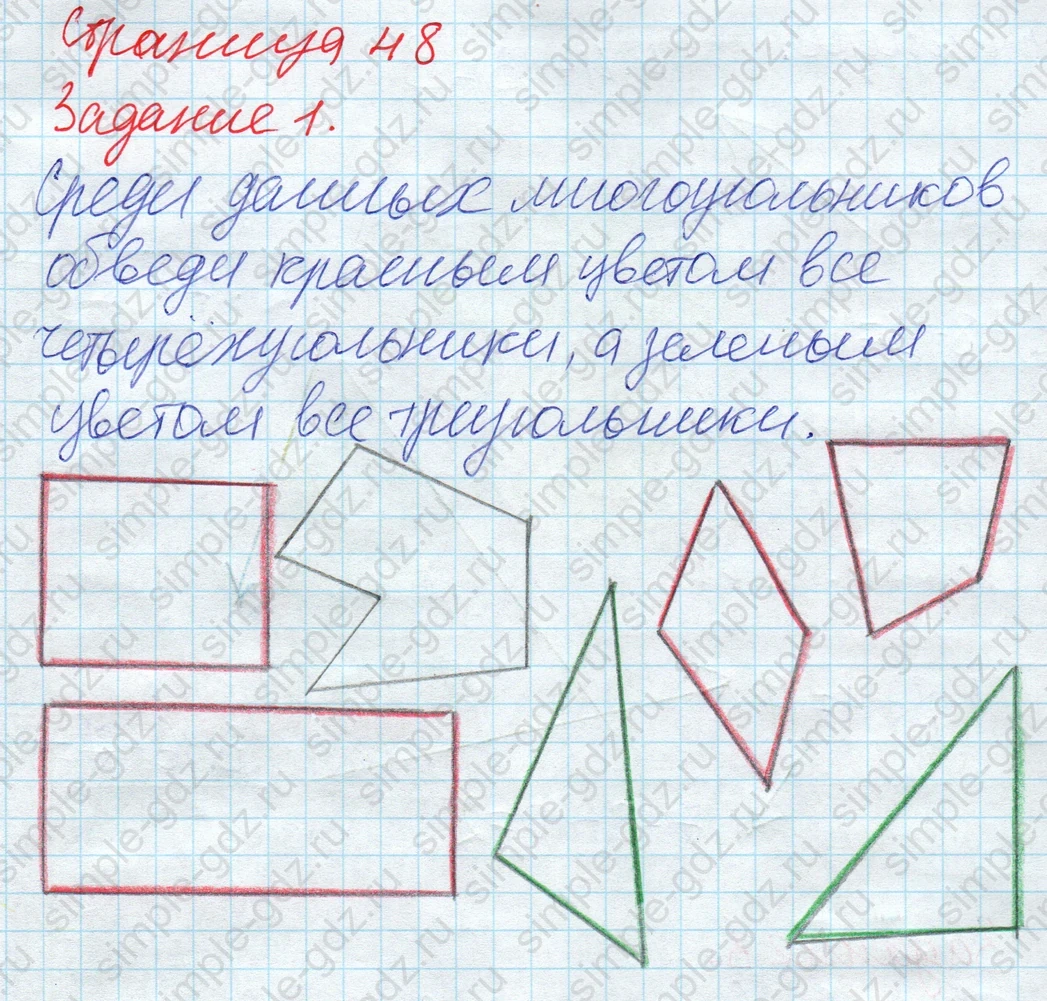 Страница 48
Задание 1.
Среди данных многоугольников
обведи красным цветом все
четырёхугольники, а зеленым
цветом все треугольники.
simple-gdz.ru